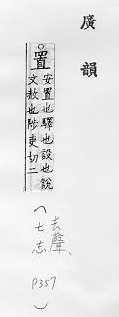 廣韻
置安置也驛也設也說
文赦也陟吏切二
(去聲、
七志
P357)